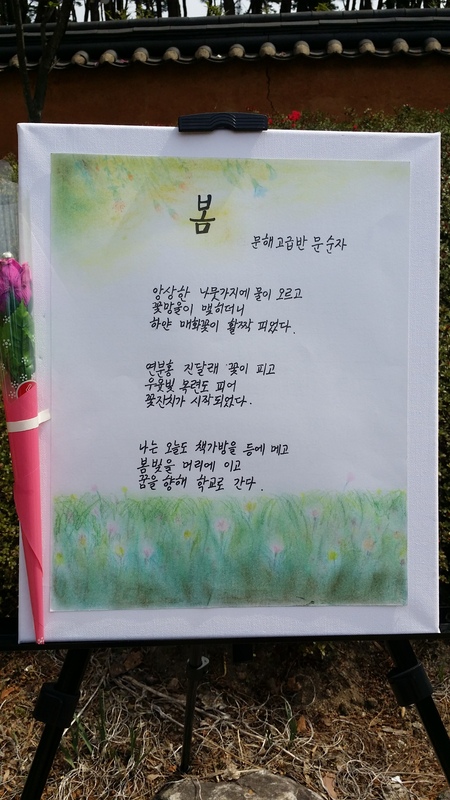 봄
문해고급반 문순자
앙상한 나뭇가지에 물이 오르고
꽃망울이 맺히더니
하얀 매화꽃이 활짝 피었다.
연분홍 진달래 꽃이 피고
우윳빛 목련도 피어
꽃잔치가 시작되었다.
나는 오늘도 책가방을 등에 메고
봄빛을 머리에 이고
꿈을 향해 학교로 간다.